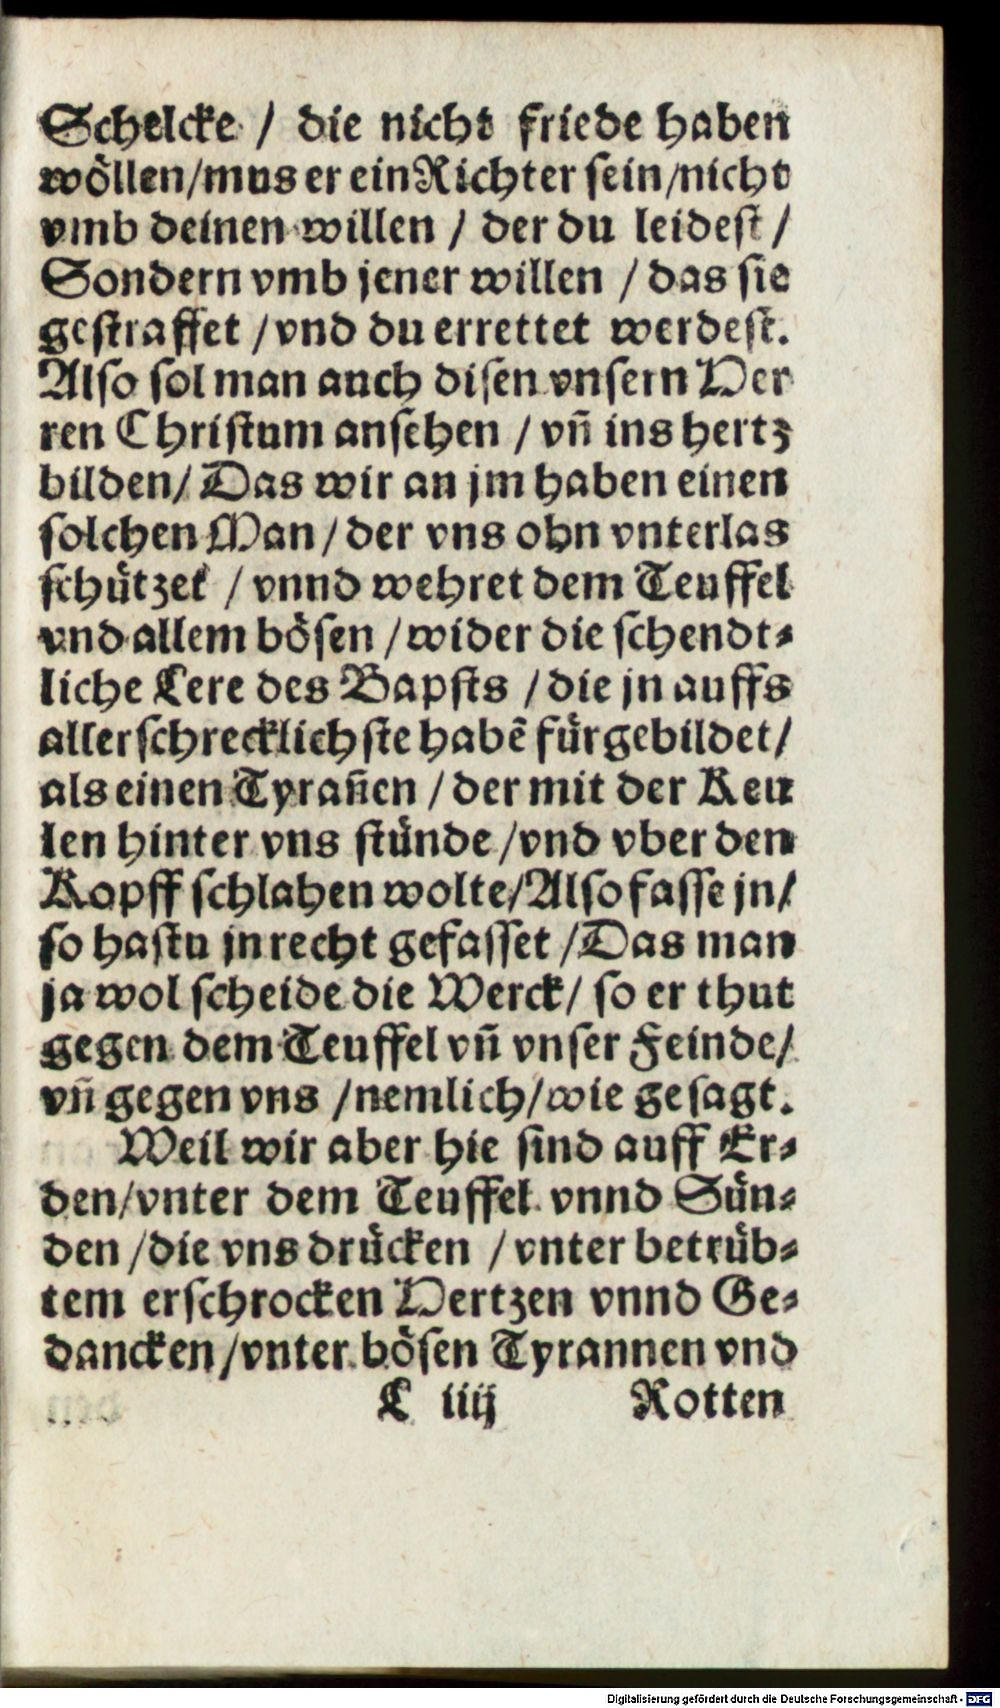 Schelcke / die nicht friede haben
wöllen/mus er ein Richter sein/nicht
vmb deinen willen / der du leidest /
Sondern vmb jener willen / das sie
gestraffet / vnd du errettet werdest.
Also sol man auch disen vnsern Her
ren Christum ansehen / vn̄ ins hertz
bilden/ Das wir an jm haben einen
solchen Man / der vns ohn vnterlas
schützet / vnnd wehret dem Teuffel
vnd allem bösen / wider die schendt-
liche Lere des Bapsts / die jn auffs
allerschrecklichste habē fürgebildet/
als einen Tyrañen / der mit der Keu
len hinter vns stünde /vnd vber den
Kopff schlahen wolte/Also fasse jn/
so hastu jn recht gefasset /Das man
ja wol scheide die Werck/ so er thut
gegen dem Teuffel vn̄ vnser Feinde/
vn̄ gegen vns /nemlich/wie gesagt.
Weil wir aber hie sind auff Er-
den/vnter dem Teuffel vnnd Sün-
den /die vns drücken / vnter betrüb-
tem erschrocken Hertzen vnnd Ge-
dancken/vnter bösen Tyrannen vnd
C iiij Rotten
Digitalisierung gefördert durch die Deutsche Forschungsgemeinschaft - DFG